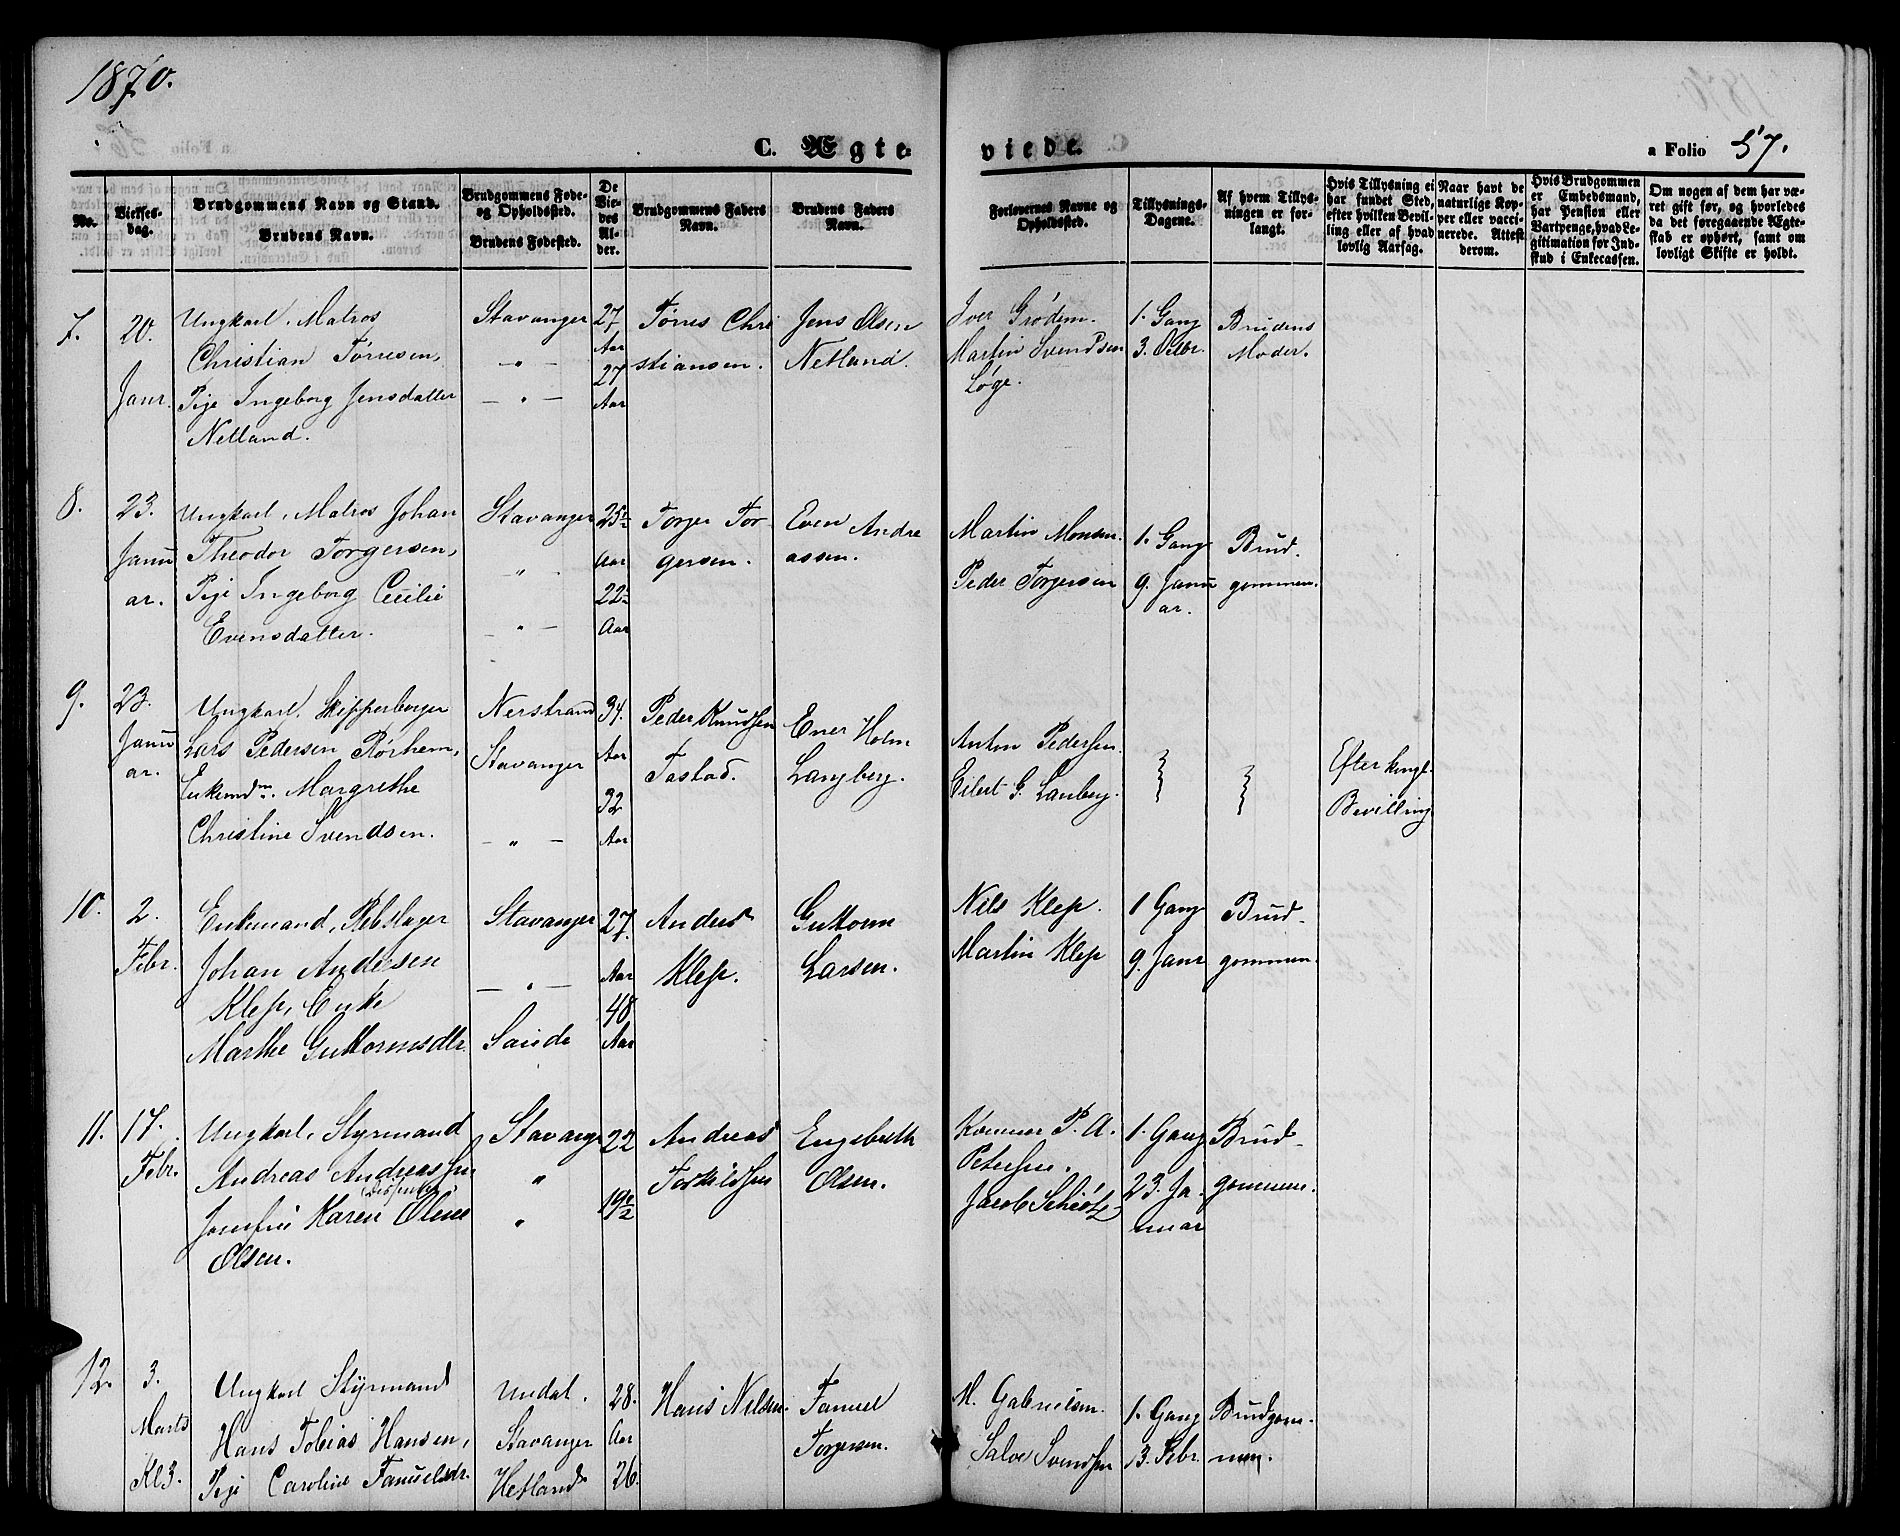 1870.
C. Ægte-
viede.
a Folio 57.
No.
Vielses-
dag.
Brudgommens Navn og Stand.
Brudens Navn.
Brudgommens Føde-
og Opholdssted.
Brudens Fødested.
De
Vie-
des
Al-
der.
Brudgommens Faders
Navn.
Brudens Faders
Navn.
Forlovernes Navne og
Opholdssted.
Tillysnings-
Dagene.
Af hvem Tillys-
ningen er for-
langt.
Hvis Tillysning ei
har fundet Sted,
efter hvilken Bevil-
ling eller af hvad
lovlig Aarsag.
Naar havt de
naturlige Kop-
per eller vacci-
nerede. Attest
derom.
Hvis Brudgommen
er Embedsmand,
har Pension eller
Vartpenge, hvad Le-
gitimation for Ind-
skud i Enkecassen.
Om nogen af dem har væ-
ret gift før, og hvorledes
da det foregaaende Ægte-
skab er ophørt, samt om
lovligt Skifte er holdt.
7.
20.
Janr.
Ungkarl, Matros
Christian Tørresen,
Pige Ingeborg Jensdatter
Netland.
Stavanger
- " -
- " -
27
Aar
27
Aar
Tørres Chri
stiansen.
Jens Olsen
Netland.
Iver Grødem.
Martin Svendsen
Løge.
1. Gang
3. Octbr.
Brudens
Moder.
8.
23.
Janu
ar.
Ungkarl, Matros Johan
Theodor Torgersen,
Pige Ingeborg Cecilie
Evensdatter.
Stavanger
"
- " -
25½
Aar
22½
Aar
Torger Tor-
gersen.
Even Andre
assen.
Martin Monsen.
Peder Torgersen
1. Gang
9. Janu
ar.
Brud-
gommen.
9.
23.
Janu
ar.
Ungkarl, Skipperborger
Lars Pedersen Rørhem,
Enkemdm. Margrethe
Christine Svendsen.
Nerstrand
Stavanger
- " -
34.
Aar
32
Aar
Peder Knudsen
Tastad.
Ener Holm
Langberg.
Anton Pedersen.
Eilert G. Lanberg.
Efter kongl.
Bevilling
10.
2.
Febr.
Enkemand, Rebslager
Johan Andersen
Klep, Enke
Marthe Guttormsdtr.
Stavanger
- " -
Sande
27.
Aar
48
Aar
Anders
Klep.
Guttorm
Larsen.
Nils Klep.
Martin Klep
1 Gang
9. Janr
Brud-
gommen.
11.
17.
Febr.
Ungkarl, Styrmand
Andreas Andreassen
Jomfru Karen Oline
Olsen.
Stavange
"
"
22
19½
Andreas
Torkildsen
Engebreth
Olsen.
P. A.
Petersen.
Jacob Schiøtz
1. Gang
23. Ja-
nuar
Brud-
gommen.
12.
3.
Marts
Kl 3.
Ungkarl Styrmand
Hans Tobias Hansen,
Pige Caroline Fanuelsdr.
Undal.
Stavanger
Hetland
28.
Aar
26.
Hans Nilsen.
Fanuel
Torgersen.
M. Gabrielsen.
Salve Svendsen
1. Gang
13. Febr.
Brudgom-
men.